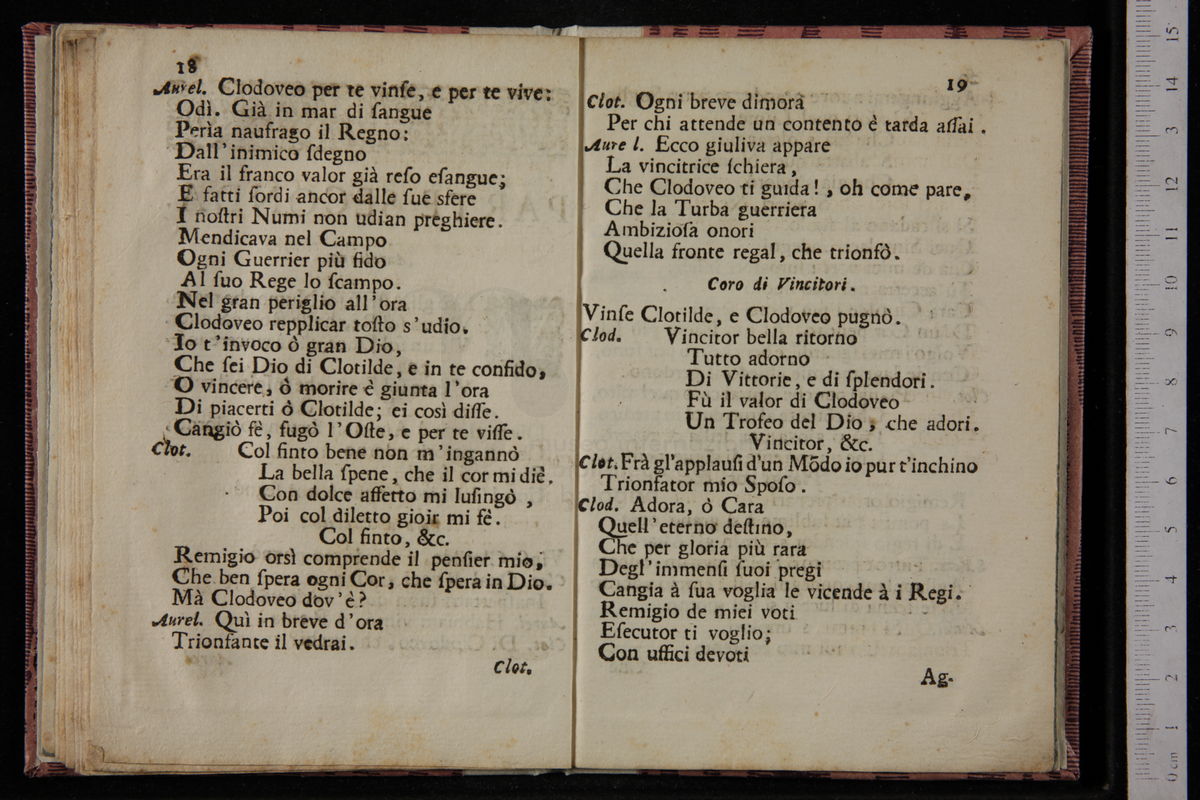 18
Aurel. Clodoveo per te vinſe, e per te vive:
Odì. Già in mar di ſangue
Perìa naufrago il Regno:
Dall'inimico ſdegno
Era il franco valor già reſo eſangue;
E fatti ſordi ancor dalle ſue sfere
I noſtri Numi non udian preghiere.
Mendicava nel Campo
Ogni Guerrier più fido
Al ſuo Rege lo ſcampo.
Nel gran periglio all'ora
Clodoveo repplicar toſto s'udìo.
Io t'invoco ò gran Dio,
Che ſei Dio di Clotilde, e in te confido,
O vincere, ò morire è giunta l'ora
Di piacerti ò Clotilde; ei così diſſe.
Cangiò fè, fugò l'Oſte, e per te viſſe.
Clot. Col finto bene non m'ingannò
La bella ſpene, che il cor mi diè.
Con dolce affetto mi luſingò ,
Poi col diletto gioir mi fè.
Col finto, &c.
Remigio orsì comprende il penſier mio,
Che ben ſpera ogni Cor, che ſpera in Dio.
Mà Clodoveo dov'è?
Aurel. Quì in breve d'ora
Trionfante il vedrai.
Clot.
19
Clot. Ogni breve dimora
Per chi attende un contento è tarda aſſai .
Aure l. Ecco giuliva appare
La vincitrice ſchiera,
Che Clodoveo ti guida! , oh come pare,
Che la Turba guerriera
Ambizioſa onori
Quella fronte regal, che trionfò.
Coro di Vincitori.
Vinſe Clotilde, e Clodoveo pugnò.
Clod. Vincitor bella ritorno
Tutto adorno
Di Vittorie, e di ſplendori.
Fù il valor di Clodoveo
Un Trofeo del Dio, che adori.
Vincitor, &c.
Clot. Frà gl'applauſi d'un Mõdo io pur t'inchino
Trionfator mio Spoſo .
Clod. Adora, ò Cara
Quell'eterno deſtino,
Che per gloria più rara
Degl'immenſi ſuoi pregi
Cangia à ſua voglia le vicende à i Regi.
Remigio de miei voti
Eſecutor ti voglio;
Con uffici devoti
Ag-